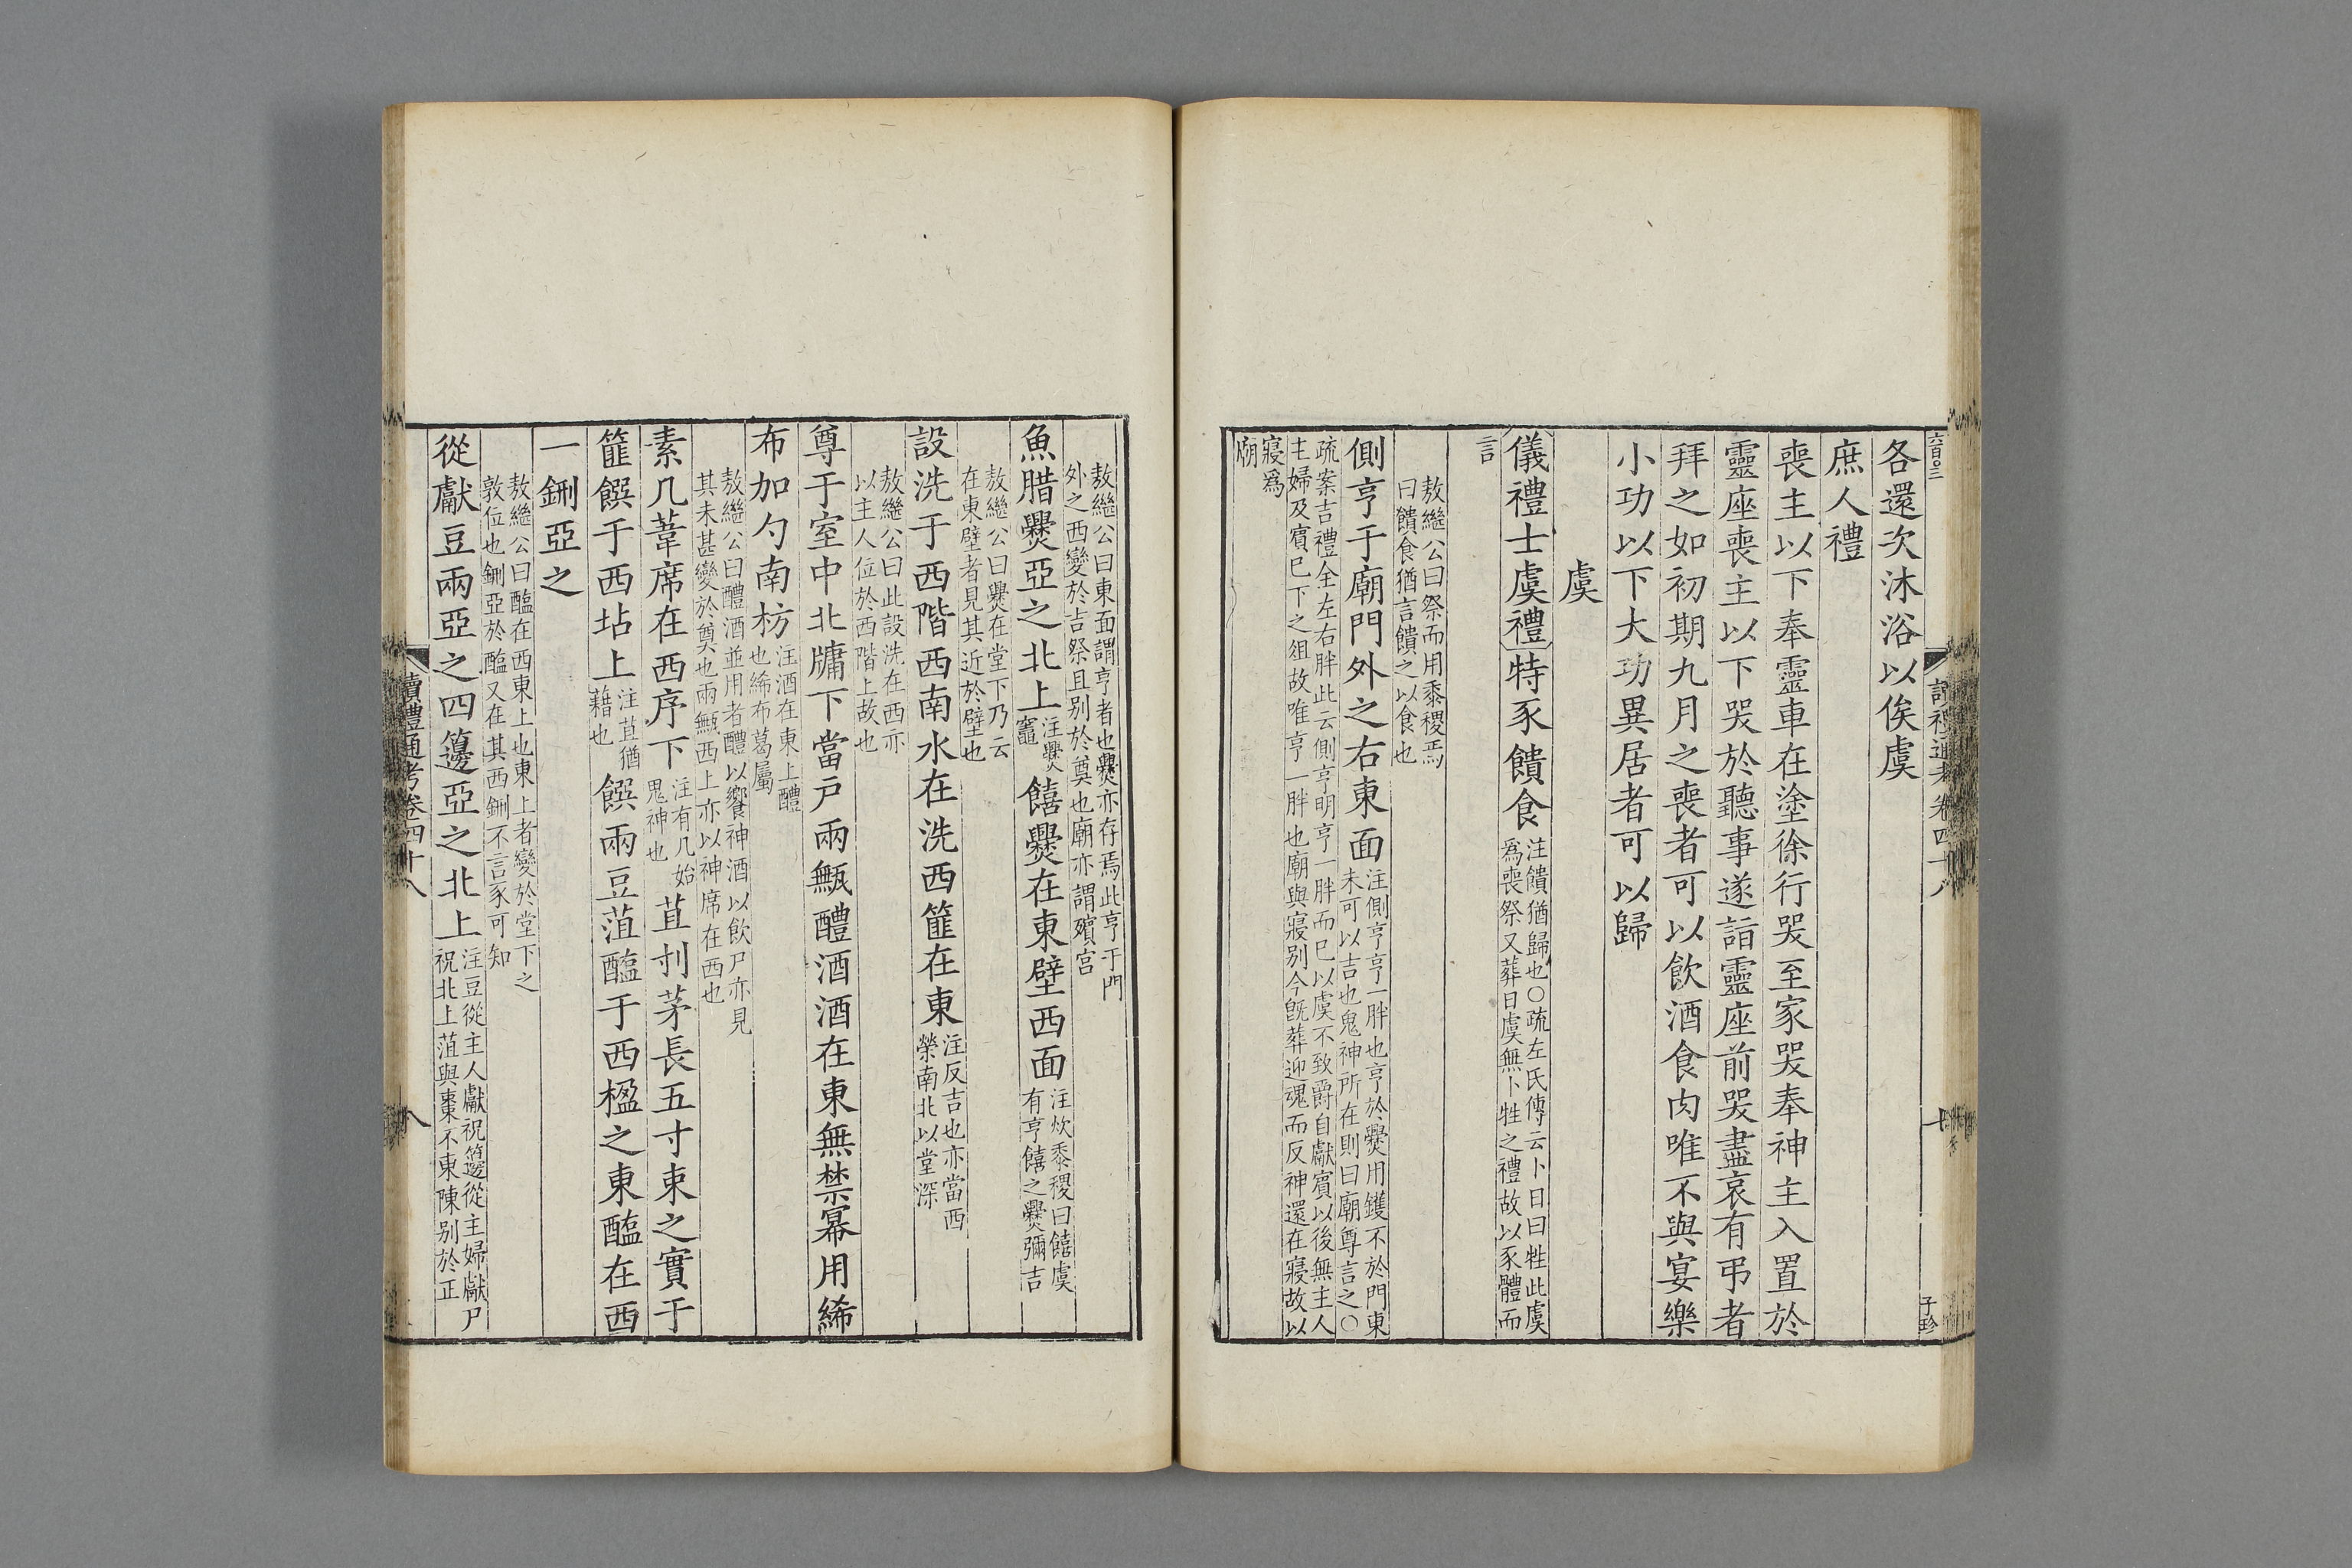 六百○三
讀禮通考卷四十八
子珍
各還次沐浴以俟虞
庶人禮
喪主以下奉靈車在塗徐行哭至家哭奉神主入置於
靈座喪主以下哭於聽事遂詣靈座前哭盡哀有弔者
拜之如初期九月之喪者可以飲酒食肉唯不與宴樂
小功以下大功異居者可以歸
虞
儀禮士虞禮特豕饋食
注饋猶歸也○疏左氏傳云卜日曰牲此虞
爲喪祭又葬日虞無卜牲之禮故以豕體而
言
敖繼公曰祭而用黍稷焉
曰饋食猶言饋之以食也
側亨于廟門外之右東面
注側亨亨一胖也亨於爨用鑊不於門東
未可以吉也鬼神所在則曰廟尊言之○
疏案吉禮全左右胖此云側亨明亨一胖而已以虞不致爵自獻賓以後無主人
主婦及賓已下之俎故唯亨一胖也廟與寢别今旣葬迎魂而反神還在寢故以
寢爲
廟
敖繼公曰東面謂亨者也爨亦存焉此亨于門
外之西變於吉祭且别於奠也廟亦謂殯宮
魚腊爨亞之北上
注爨
竈
饎爨在東壁西面
注炊黍稷曰饎虞
有亨饎之爨彌吉
敖繼公曰爨在堂下乃云
在東壁者見其近於壁也
設洗于西階西南水在洗西篚在東
注反吉也亦當西
榮南北以堂深
敖繼公曰此設洗在西亦
以主人位於西階上故也
尊于室中北牖下當戶兩甒醴酒酒在東無禁冪用絺
布加勺南枋
注酒在東上醴
也絺布葛屬
敖繼公曰醴酒並用者醴以饗神酒以飲尸亦見
其未甚變於奠也兩甒西上亦以神席在西也
素几葦席在西序下
注有几始
鬼神也
苴刌茅長五寸束之實于
篚饌于西坫上
注苴猶
藉也
饌兩豆菹醢于西楹之東醢在西
一鉶亞之
敖繼公曰醢在西東上也東上者變於堂下之
敦位也鉶亞於醢又在其西鉶不言豕可知
從獻豆兩亞之四籩亞之北上
注豆從主人獻祝籩從主婦獻尸
祝北上菹與棗不東陳别於正
讀禮通考卷四十八
八